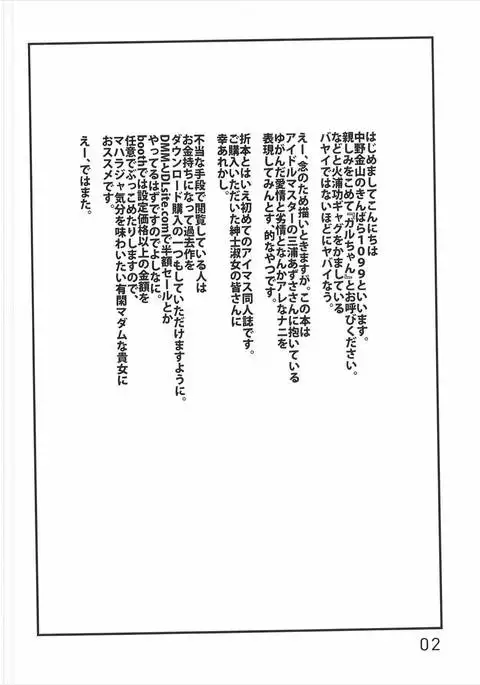 はじめましてこんにちは
中野金山のきんばら1099といいます。
親しみをこめて『ガルちゃん』とお呼びください。
などと火浦功ギャグをかましている
バヤイではないほどにヤバイなう。
えー、念のため描いときますが。この本は
アイドルマスターの三浦あずささんに抱いている
ゆがんだ愛情と劣情となんかアレなナニを
表現してみんとす、的なやつです。
折本とはいえ初めてのアイマス同人誌です。
ご購入いただいた紳士淑女の皆さんに
幸あれかし。
不当な手段で閲覧している人は
お金持ちになって過去作を
ダウンロード購入の一つもしていただけますように。
DMM・DLsite.comで半額セールとか
やってるはずですのでよしなに。
boothでは設定価格以上の金額を
任意でぶっこめたりしますので、
マハラジャ気分を味わいたい有閑マダムな貴女に
おススメです。
えー、ではまた。
02